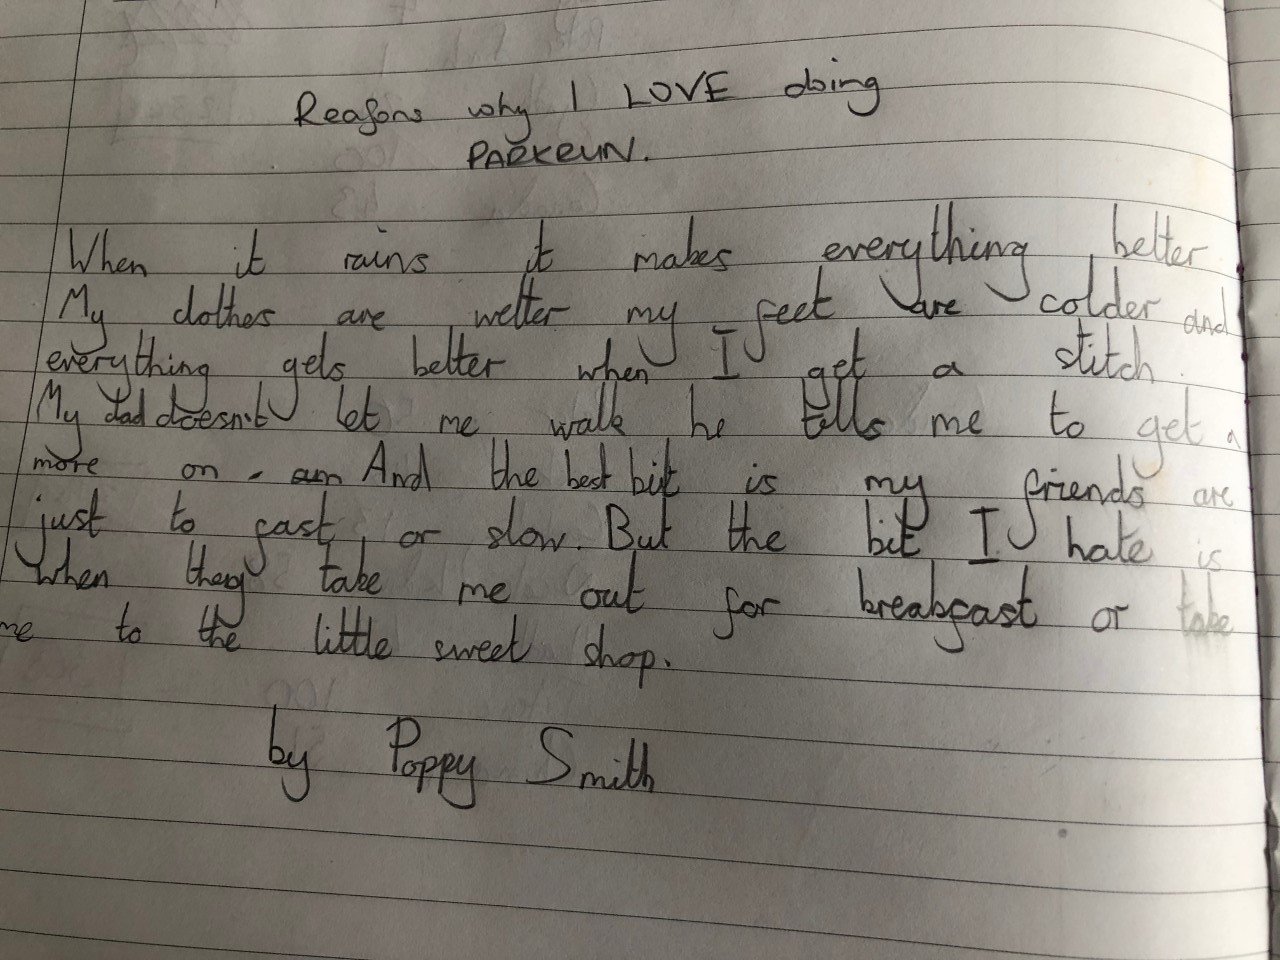 Reasons why I LOVE doing
PARKRUN.
When it rains it makes everything better
My clothes are wetter my feet are colder and
everything gets better when I get a stitch.
My dad doesn't let me walk he tells me to get a
more on. And the best bit is my friends are
just to fast or slow. But the bit I hate is
when they take me out for breakfast or take
me to the little sweet shop.
by Poppy Smith